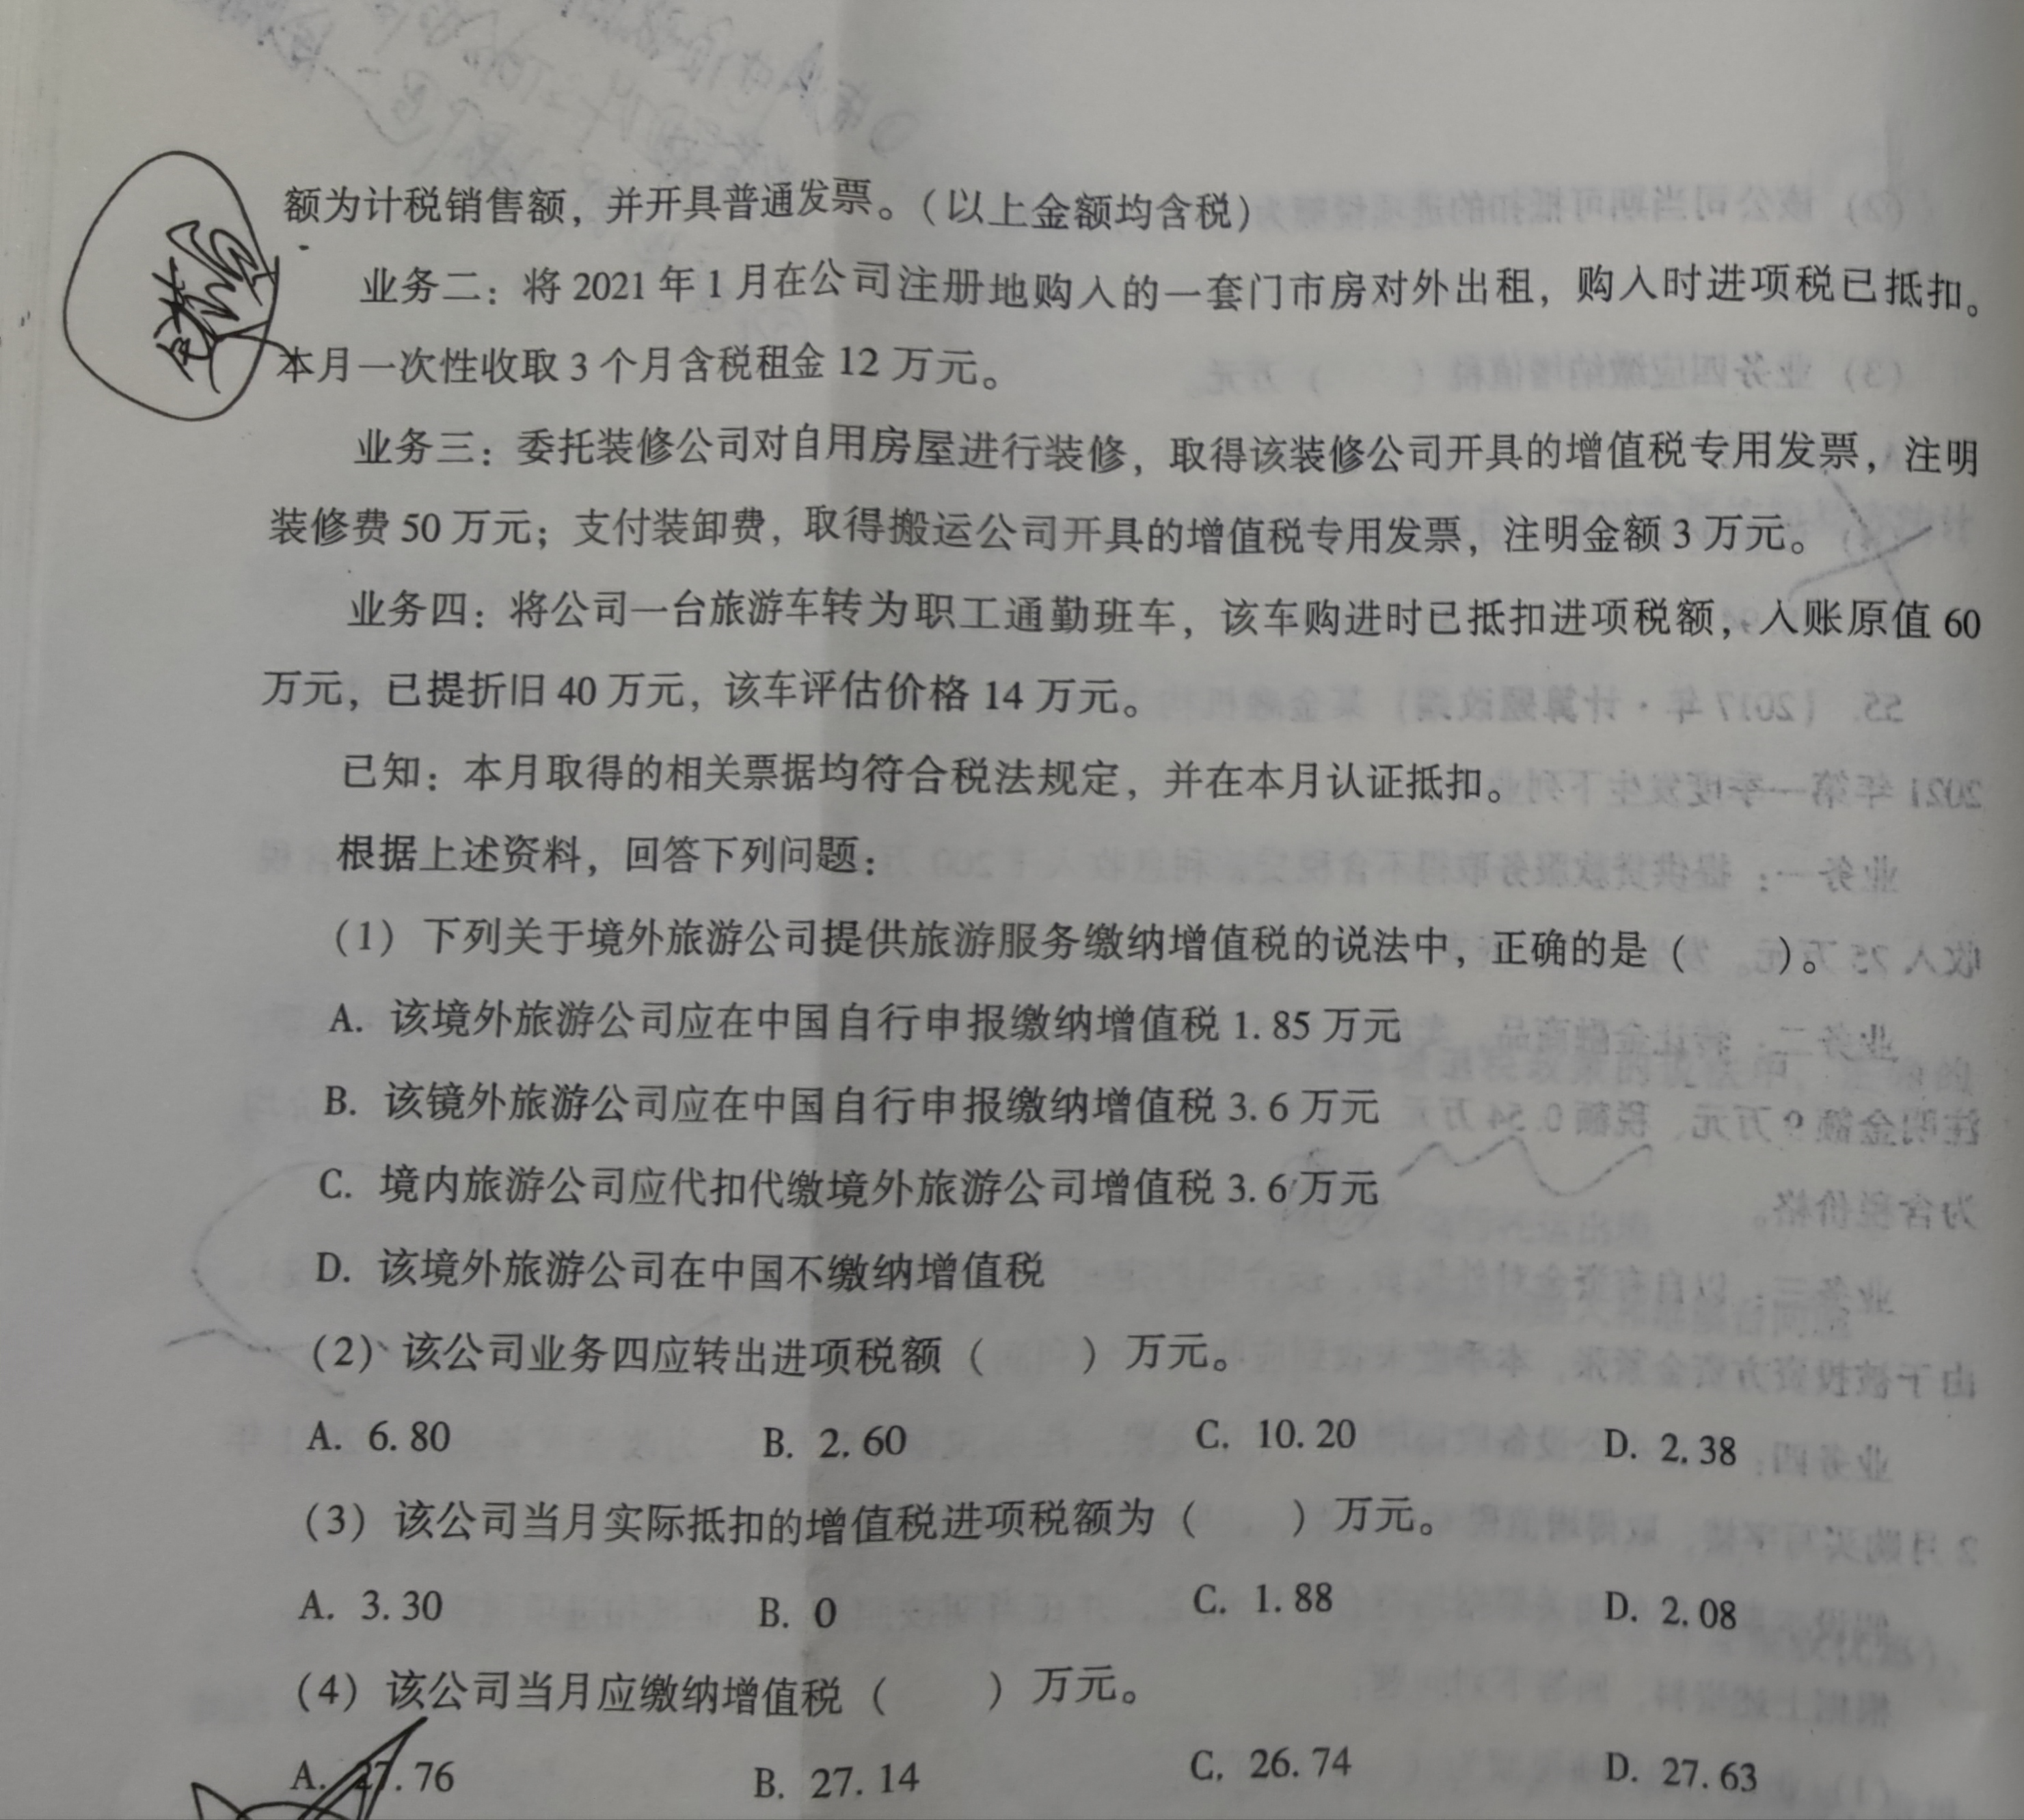 额为计税销售额，并开具普通发票。（以上金额均含税）
业务二：将 2021 年 1 月在公司注册地购入的一套门市房对外出租，购入时进项税已抵扣。
本月一次性收取 3 个月含税租金 12 万元。
业务三：委托装修公司对自用房屋进行装修，取得该装修公司开具的增值税专用发票，注明
装修费 50 万元；支付装卸费，取得搬运公司开具的增值税专用发票，注明金额 3 万元。
业务四：将公司一台旅游车转为职工通勤班车，该车购进时已抵扣进项税额，入账原值 60
万元，已提折旧 40 万元，该车评估价格 14 万元。
已知：本月取得的相关票据均符合税法规定，并在本月认证抵扣。
根据上述资料，回答下列问题：
（1）下列关于境外旅游公司提供旅游服务缴纳增值税的说法中，正确的是（　　）。
A. 该境外旅游公司应在中国自行申报缴纳增值税 1.85 万元
B. 该镜外旅游公司应在中国自行申报缴纳增值税 3.6 万元
C. 境内旅游公司应代扣代缴境外旅游公司增值税 3.6 万元
D. 该境外旅游公司在中国不缴纳增值税
（2）该公司业务四应转出进项税额（　　）万元。
A. 6.80　　B. 2.60　　C. 10.20　　D. 2.38
（3）该公司当月实际抵扣的增值税进项税额为（　　）万元。
A. 3.30　　B. 0　　C. 1.88　　D. 2.08
（4）该公司当月应缴纳增值税（　　）万元。
A. 27.76　　B. 27.14　　C. 26.74　　D. 27.63